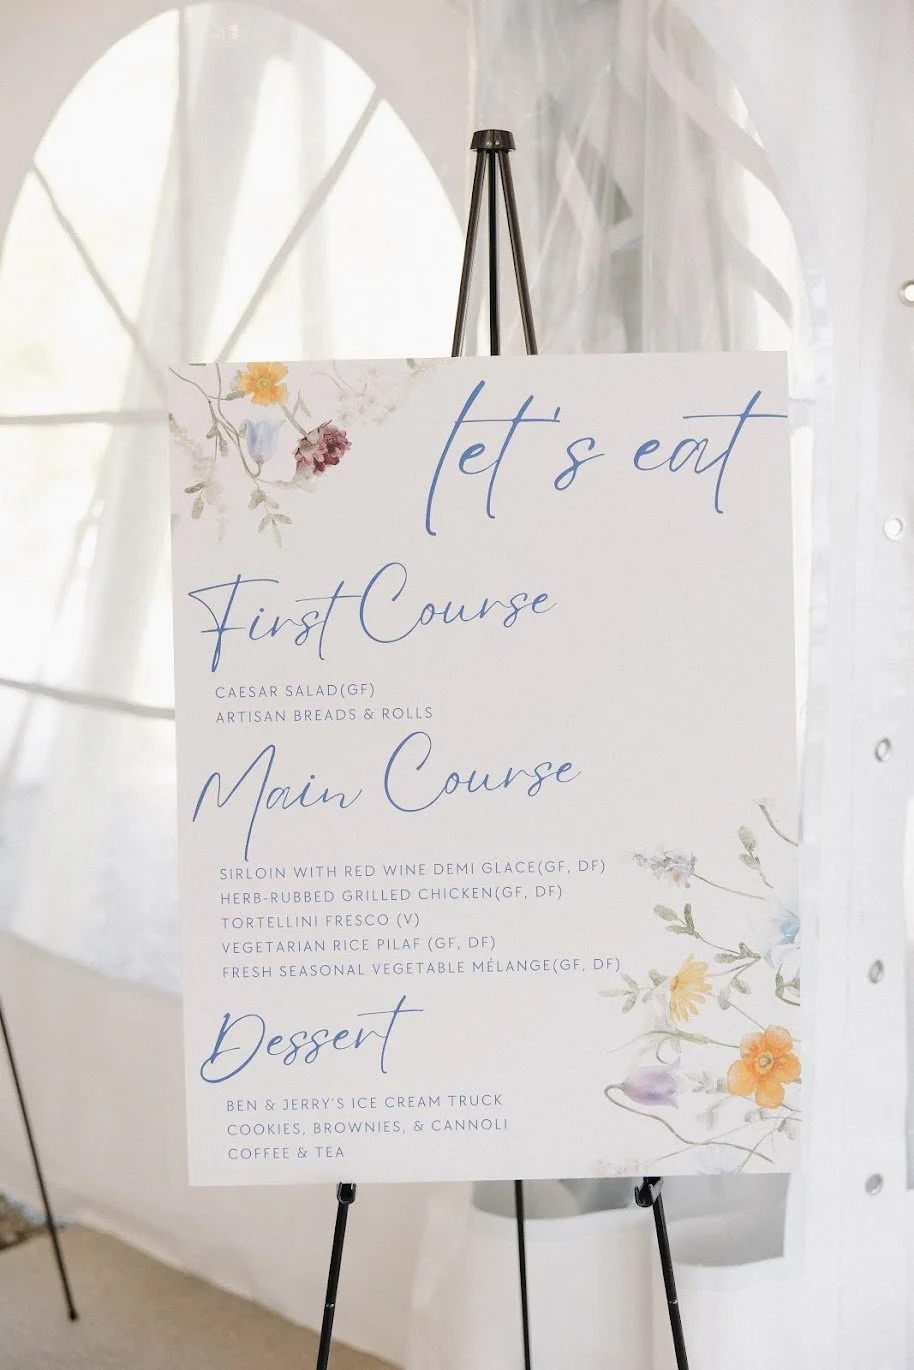 let's eat
First Course
CAESAR SALAD(GF)
ARTISAN BREADS & ROLLS
Main Course
SIRLOIN WITH RED WINE DEMI GLACE(GF, DF)
HERB-RUBBED GRILLED CHICKEN(GF, DF)
TORTELLINI FRESCO (V)
VEGETARIAN RICE PILAF (GF, DF)
FRESH SEASONAL VEGETABLE MÉLANGE(GF, DF)
Dessert
BEN & JERRY'S ICE CREAM TRUCK
COOKIES, BROWNIES, & CANNOLI
COFFEE & TEA